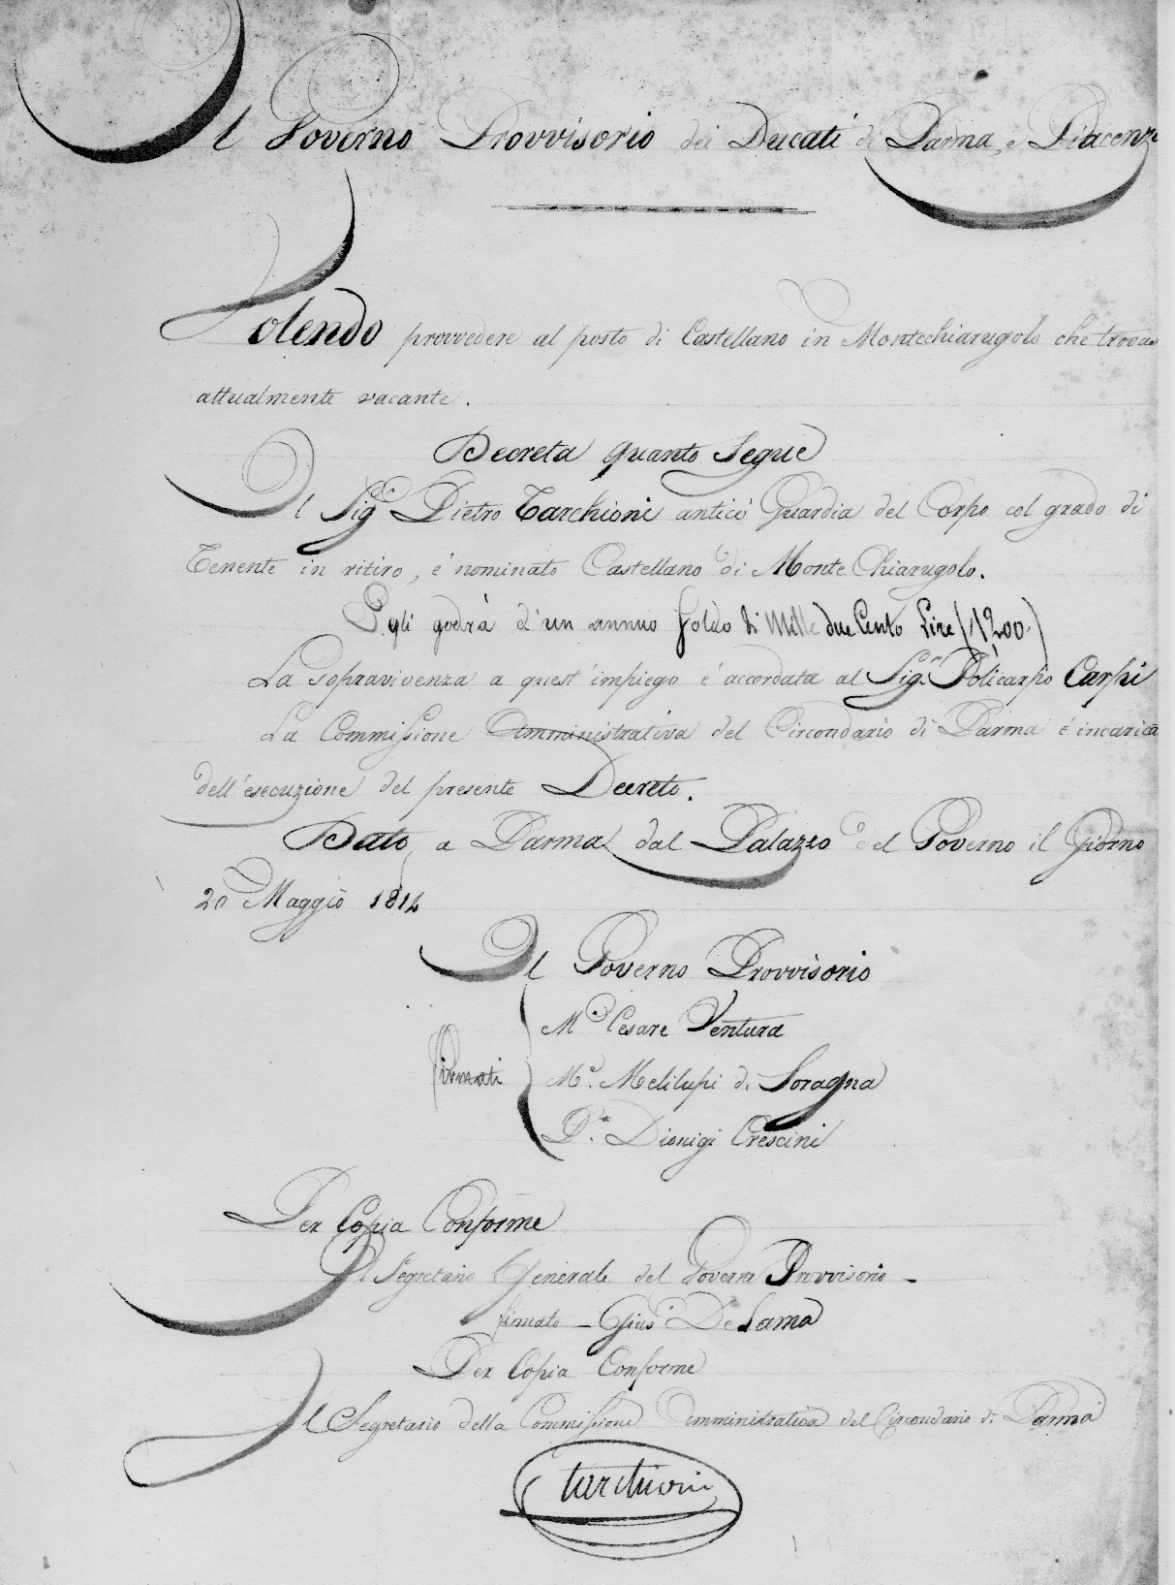 Il Governo Provvisorio dei Ducati di Parma, e Piacenza
Volendo provvedere al posto di Castellano in Montechiarugolo che trovasi
attualmente vacante.
Decreta quanto Segue
Il Sig.e Pietro Tarchioni antico Guardia del Corpo col grado di
Tenente in ritiro, é nominato Castellano di Monte Chiarugolo.
Egli godrà d'un annuo Soldo di Mille due Cento Lire (1200.)
La sopravivenza a quest'impiego é accordata al Sig.r Policarpo Carpi
La Commissione Amministrativa del Circondario di Parma é incarica
dell'esecuzione del presente Decreto.
Dato a Parma dal Palazzo del Governo il Giorno
20 Maggio 1814
Il Governo Provvisorio
M.e Cesare Ventura
firmati M.e Melilupi di Soragna
P.e Dionigi Crescini
Per Copia Conforme
Il Segretario Generale del Governo Provvisorio -
firmato - Gius.e De Lama
Per Copia Conforme
Il Segretario della Commissione Amministrativa del Circondario di Parma